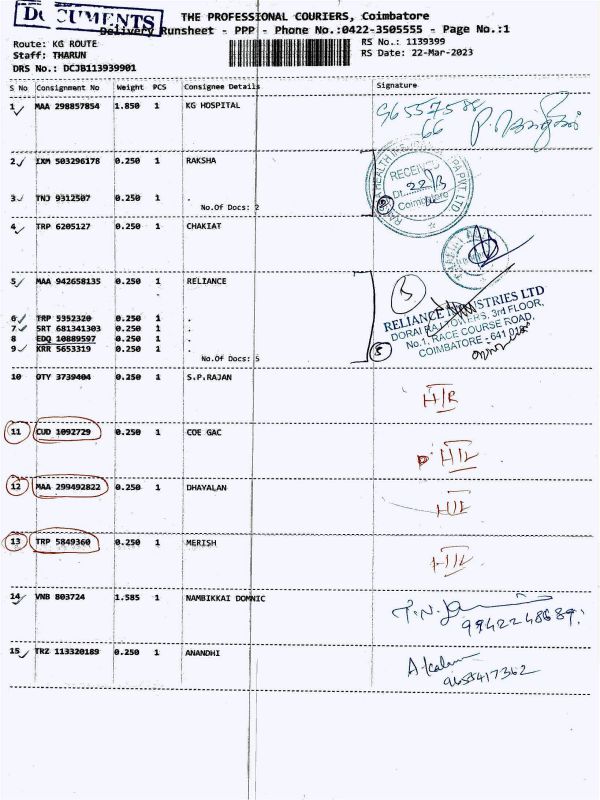 DOCUMENTS
THE PROFESSIONAL COURIERS, Coimbatore
Delivery Runsheet - PPP - Phone No.:0422-3505555 - Page No.:1
Route: KG ROUTE
RS No.: 1139399
Staff: THARUN
RS Date: 22-Mar-2023
DRS No.: DCJB113939901
S No Consignment No Weight PCS Consignee Details Signature
1 MAA 298857854 1.850 1 KG HOSPITAL
9655758866
2 IXM 503296178 0.250 1 RAKSHA
RECEIVED
Dt. 22/3
Coimbatore
3 TNJ 9312507 0.250 1 .
No.Of Docs: 2
2
4 TRP 6205127 0.250 1 CHAKIAT
5 MAA 942658135 0.250 1 RELIANCE
RELIANCE INDUSTRIES LTD
DORAI RAJ TOWERS, 3rd FLOOR,
No.1, RACE COURSE ROAD,
COIMBATORE - 641 018
6 TRP 5352320 0.250 1 .
7 SRT 681341303 0.250 1 .
8 EDQ 10889597 0.250 1 .
9 KRR 5653319 0.250 1 .
No.Of Docs: 5
5
10 OTY 3739404 0.250 1 S.P.RAJAN
11 CUD 1092729 0.250 1 COE GAC
12 MAA 299492822 0.250 1 DHAYALAN
13 TRP 5849360 0.250 1 MERISH
14 VNB 803724 1.585 1 NAMBIKKAI DOMNIC
9942248689
15 TRZ 113320189 0.250 1 ANANDHI
9655417362